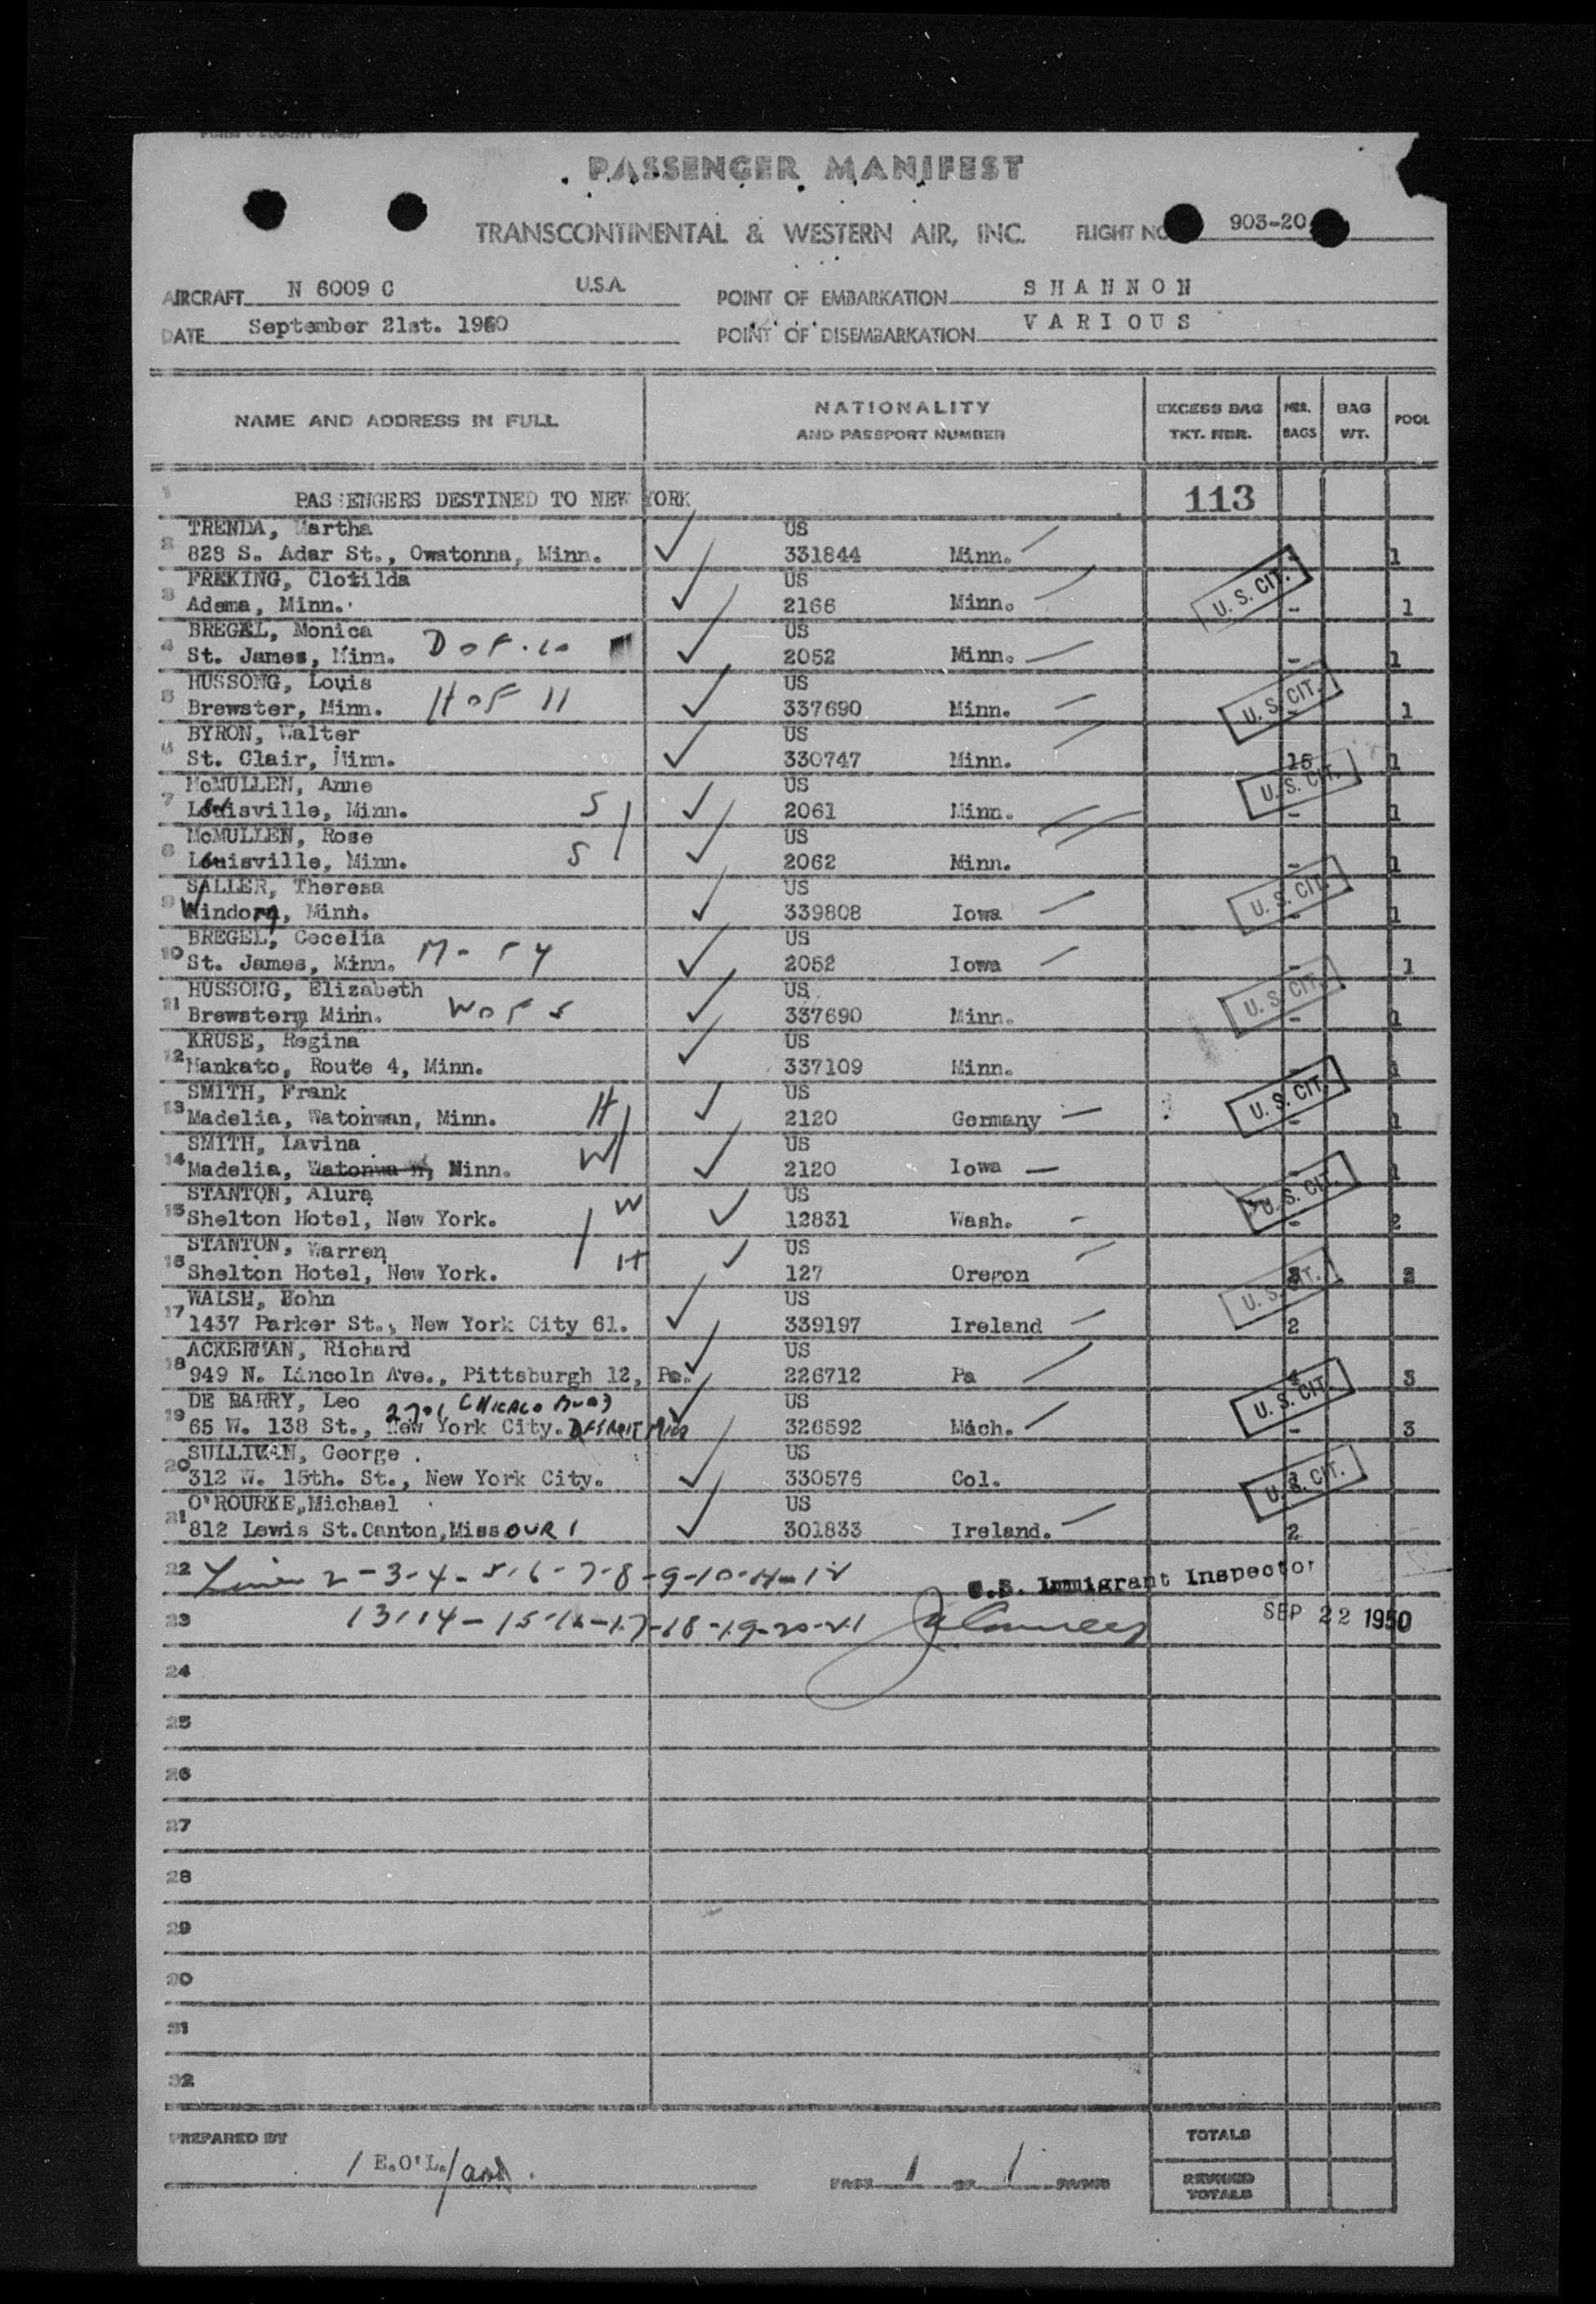 PASSENGER MANIFEST
TRANSCONTINENTAL & WESTERN AIR, INC. FLIGHT NO 903-20
AIRCRAFT N 6009 C U.S.A. POINT OF EMBARKATION SHANNON
DATE September 21st. 1950 POINT OF DISEMBARKATION VARIOUS
NAME AND ADDRESS IN FULL NATIONALITY AND PASSPORT NUMBER EXCESS BAG TKT. NBR. NBR. BAGS BAG WT. POOL
1 PASSENGERS DESTINED TO NEW YORK 113
TRENDA, Martha US
2 828 S. Adar St., Owatonna, Minn. 331844 Minn. 1
FREKING, Clotilda US U. S. CIT.
3 Adema, Minn. 2166 Minn. - 1
BREGEL, Monica US
4 St. James, Minn. 2052 Minn. - 1
HUSSONG, Louis US U. S. CIT.
5 Brewster, Minn. H OF 11 337690 Minn. - 1
BYRON, Walter US
6 St. Clair, Minn. 330747 Minn. 15 1
McMULLEN, Anne US U. S. CIT.
7 Louisville, Minn. S 2061 Minn. - 1
McMULLEN, Rose US
8 Louisville, Minn. S 2062 Minn. - 1
SALLER, Theresa US U. S. CIT.
9 Windom, Minn. 339808 Iowa - 1
BREGEL, Cecelia US
10 St. James, Minn. M-F4 2052 Iowa - 1
HUSSONG, Elizabeth US U. S. CIT.
11 Brewsterm Minn. W OF 5 337690 Minn. - 1
KRUSE, Regina US
12 Mankato, Route 4, Minn. 337109 Minn. - 1
SMITH, Frank US U. S. CIT.
13 Madelia, Watonwan, Minn. H 2120 Germany - 1
SMITH, Lavina US
14 Madelia, Watonwan, Minn. W 2120 Iowa - 1
STANTON, Alura US U. S. CIT.
15 Shelton Hotel, New York. W 12831 Wash. - 2
STANTON, Warren US
16 Shelton Hotel, New York. H 127 Oregon 2
WALSH, Hohn US U. S. CIT.
17 1437 Parker St., New York City 61. 339197 Ireland 2
ACKERMAN, Richard US
18 949 N. Lincoln Ave., Pittsburgh 12, Pa. 226712 Pa 4 3
DE BARRY, Leo 2701 CHICAGO BLVD US U. S. CIT.
19 65 W. 138 St., New York City. DETROIT MICH 326592 Mich. - 3
SULLIVAN, George US
20 312 W. 15th. St., New York City. 330576 Col. U. S. CIT.
O'ROURKE, Michael US
21 812 Lewis St. Canton, MissOURI 301833 Ireland. 2
22 Lines 2-3-4-5-6-7-8-9-10-11-12 U.S. Immigrant Inspector
23 13-14-15-16-17-18-19-20-21 SEP 22 1950
24
25
26
27
28
29
30
31
32
PREPARED BY TOTALS
E.O'L. PAGE 1 OF 1 PAGES REVISED TOTALS